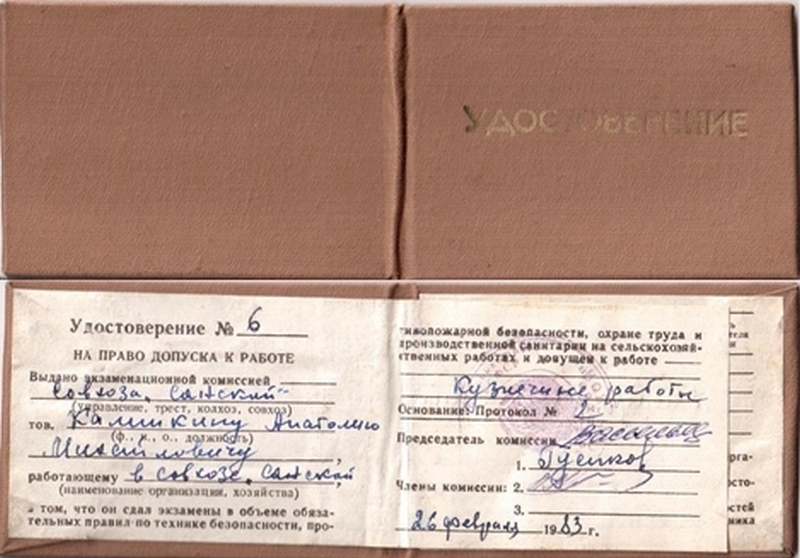 УДОСТОВЕРЕНИЕ
Удостоверение № 6
НА ПРАВО ДОПУСКА К РАБОТЕ
Выдано экзаменационной комиссией
совхоза
(управление, трест, колхоз, совхоз)
тов. Калинкину Анатолию
(ф., и., о., должность)
работающему в совхозе
(наименование организации, хозяйства)
в том, что он сдал экзамены в объеме обяза-
тельных правил по технике безопасности, про-
тивопожарной безопасности, охране труда и
производственной санитарии на сельскохозяй-
ственных работах и допущен к работе
Кузнечные работы
Основание: Протокол № 2
Председатель комиссии
1. Гусиков
Члены комиссии: 2.
3.
26 февраля 1983 г.